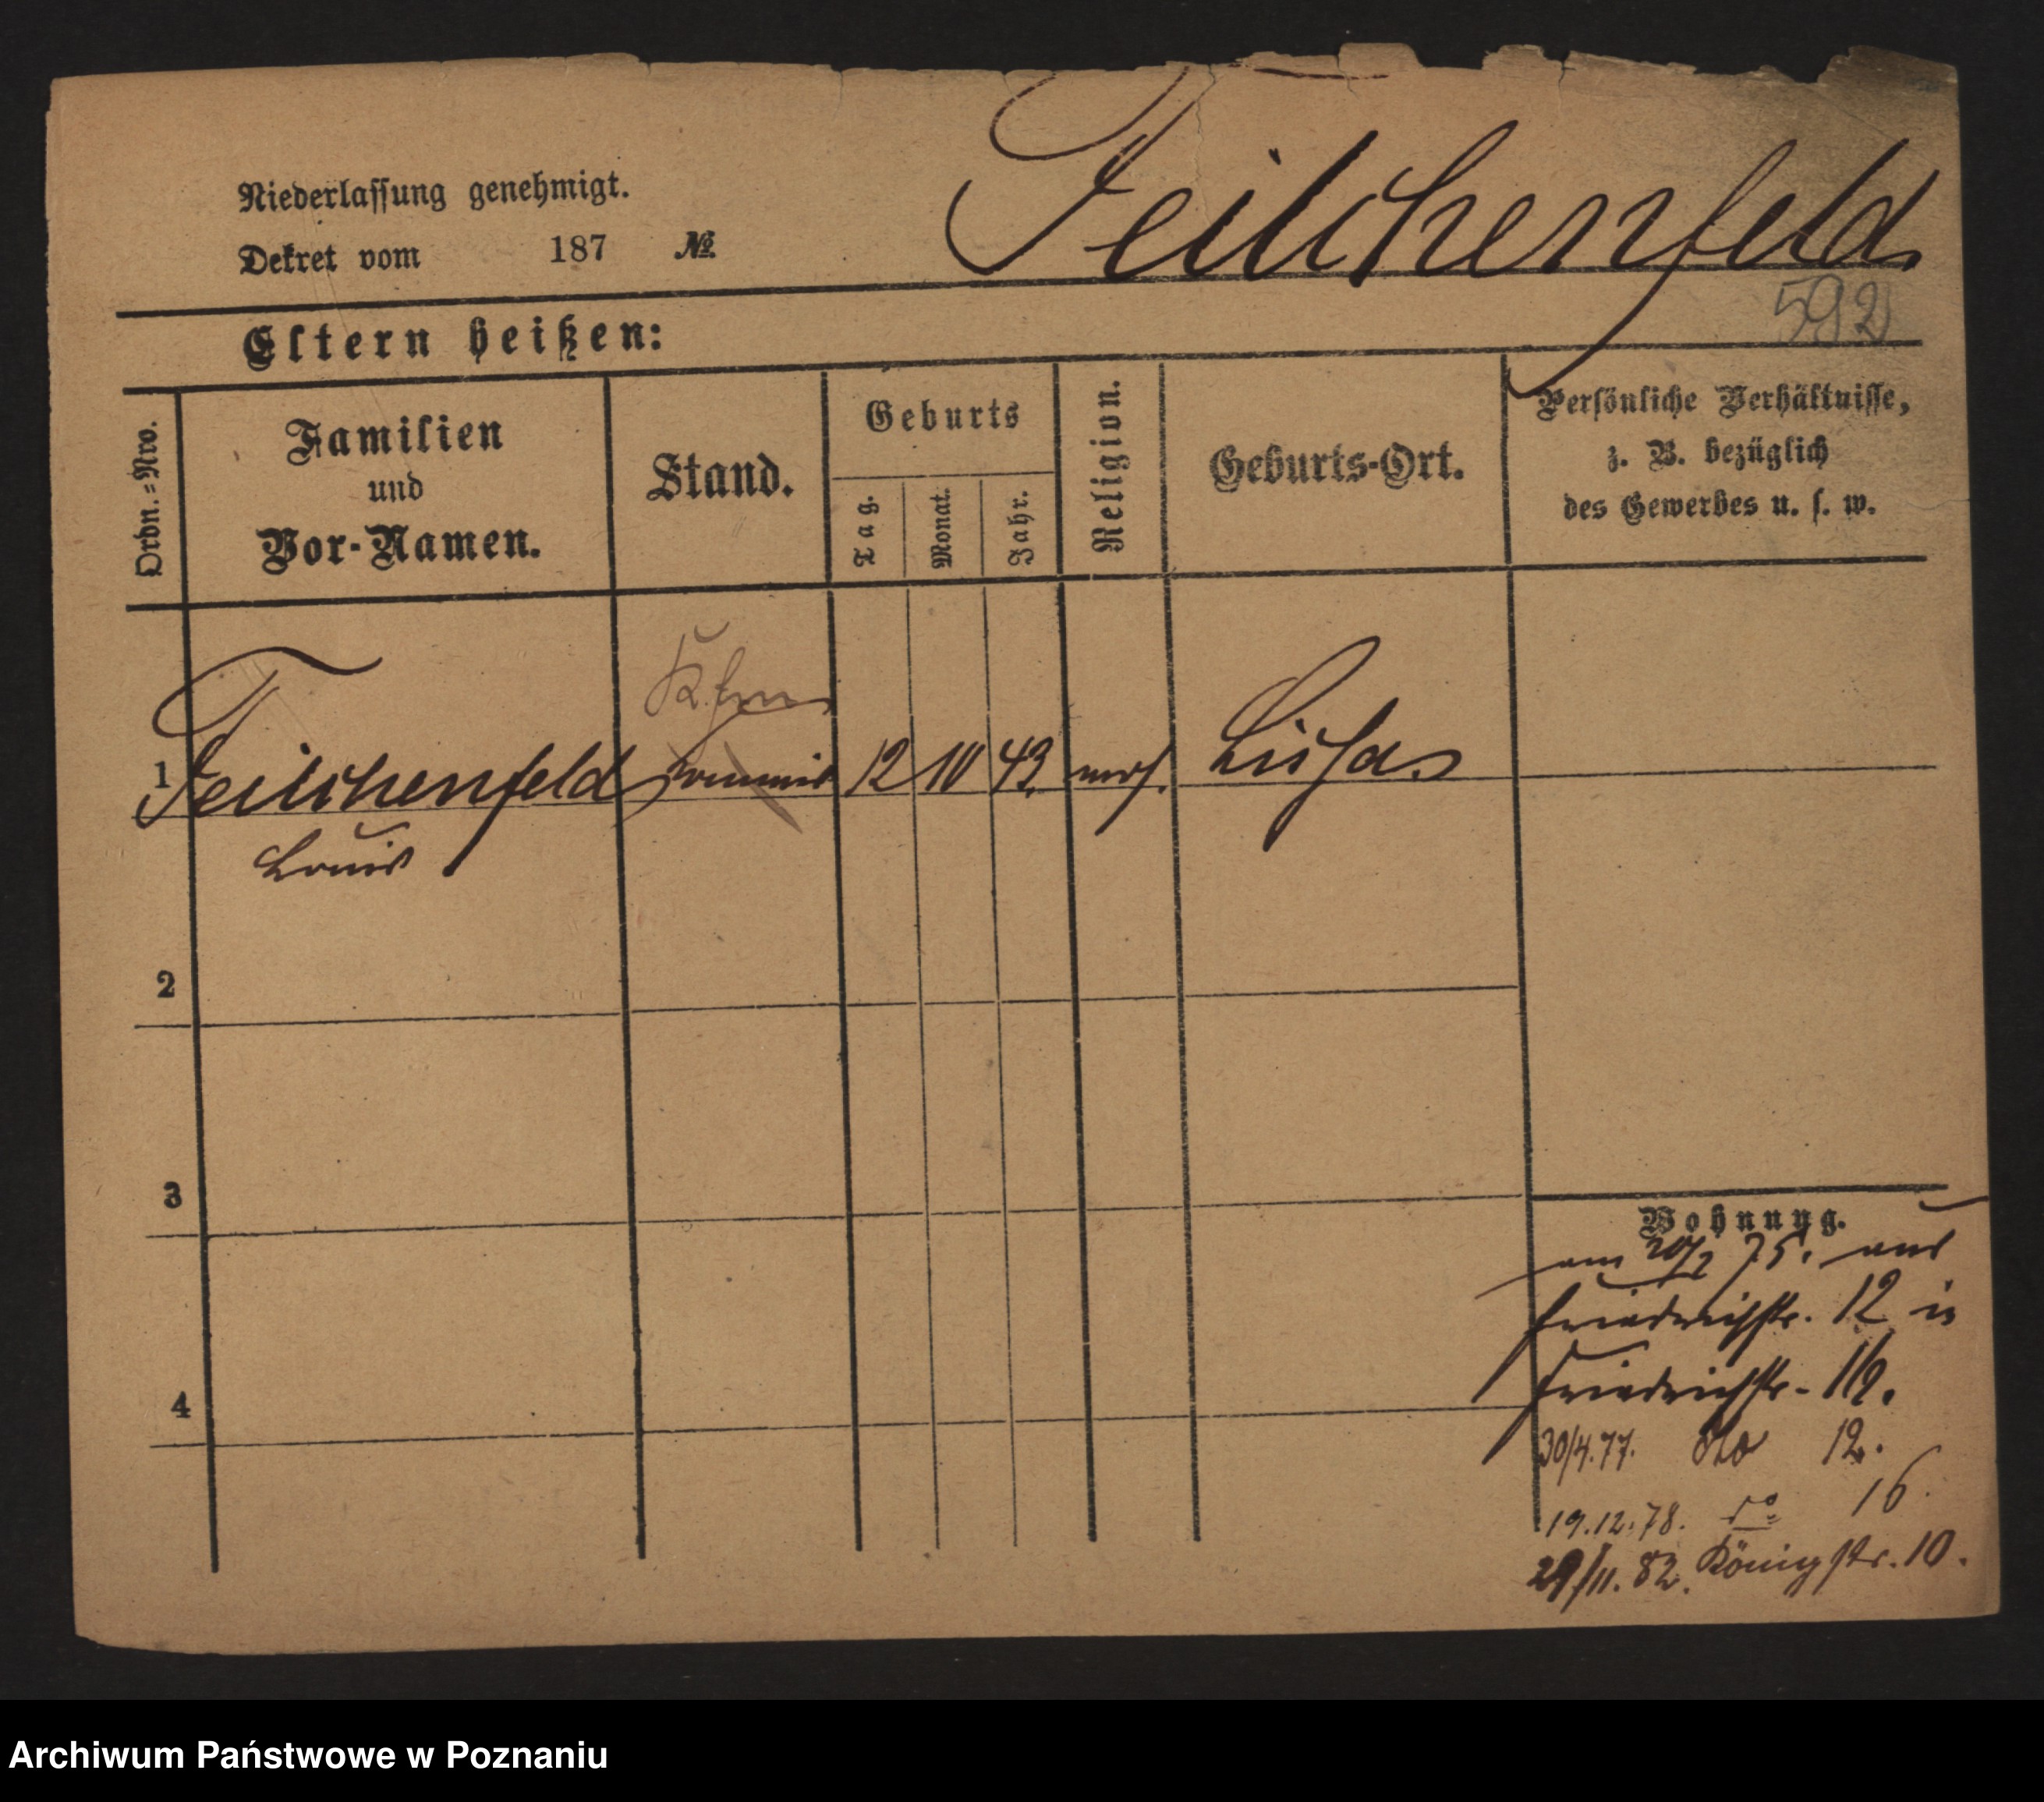 Niederlassung genehmigt.
Dekret vom 187 №
Feilchenfeld
592
Eltern heißen:
Ordn.-Nro.
Familien
und
Vor-Namen.
Stand.
Geburts
Tag.
Monat.
Jahr.
Religion.
Geburts-Ort.
Persönliche Verhältnisse,
z. B. bezüglich
des Gewerbes u. s. w.
Kfm
1 Feilchenfeld Commis 12 10 43. mos.
Louis
2
3
4
Wohnung.
am 20/2 75. aus
Friedrichstr. 12 in
Friedrichstr. 19.
30/4.77. dto 12.
19.12.78. do 16.
29/11.82. Königstr. 10.
Archiwum Państwowe w Poznaniu